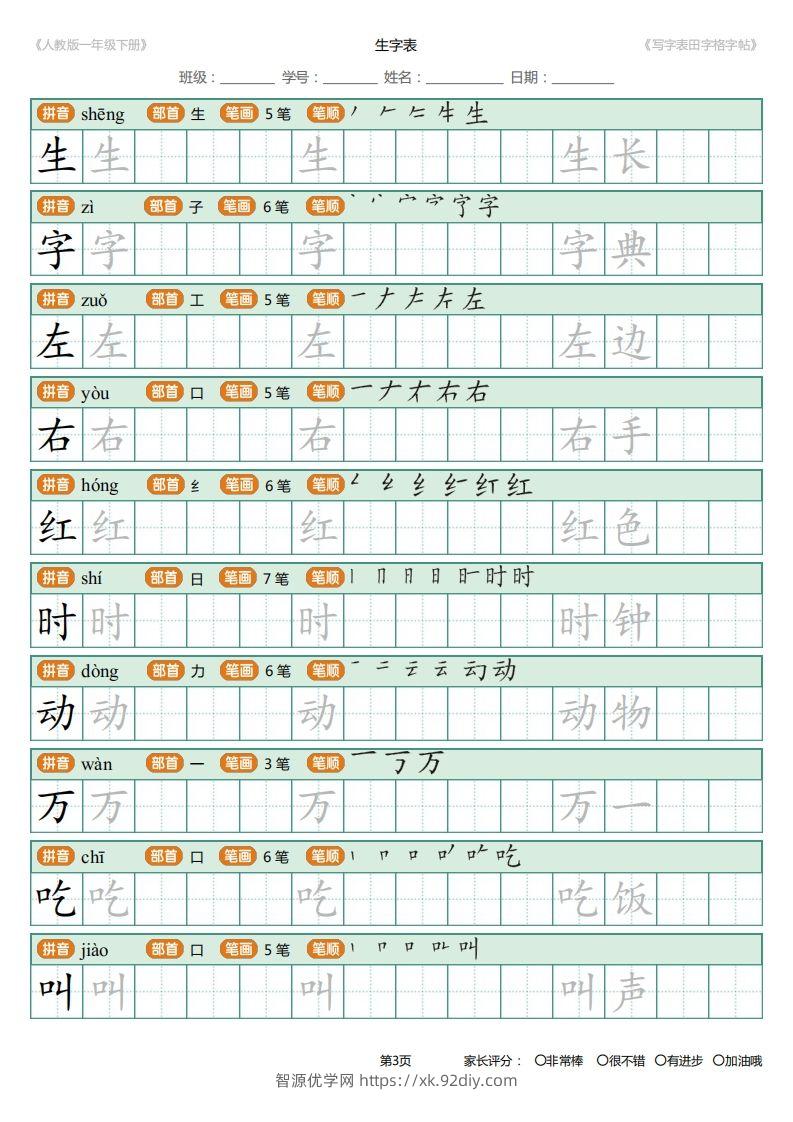 《人教版一年级下册》 生字表 《写字表田字格字帖》
班级：________ 学号：________ 姓名：___________ 日期：_________
拼音 shēng 部首 生 笔画 5 笔 笔顺 丿 𠂉 生
生 生 生 生 长
拼音 zì 部首 子 笔画 6 笔 笔顺 丶 宀 字
字 字 字 字 典
拼音 zuǒ 部首 工 笔画 5 笔 笔顺 一 𠂇 左
左 左 左 左 边
拼音 yòu 部首 口 笔画 5 笔 笔顺 一 𠂇 右 右
右 右 右 右 手
拼音 hóng 部首 纟 笔画 6 笔 笔顺 纟 红
红 红 红 红 色
拼音 shí 部首 日 笔画 7 笔 笔顺 丨 冂 日 时 时
时 时 时 时 钟
拼音 dòng 部首 力 笔画 6 笔 笔顺 一 二 云 动
动 动 动 动 物
拼音 wàn 部首 一 笔画 3 笔 笔顺 一 丂 万
万 万 万 万 一
拼音 chī 部首 口 笔画 6 笔 笔顺 丨 口 吃
吃 吃 吃 吃 饭
拼音 jiào 部首 口 笔画 5 笔 笔顺 丨 口 叫
叫 叫 叫 叫 声
第3页 家长评分： 〇非常棒 〇很不错 〇有进步 〇加油哦
智源优学网 https://xk.92diy.com